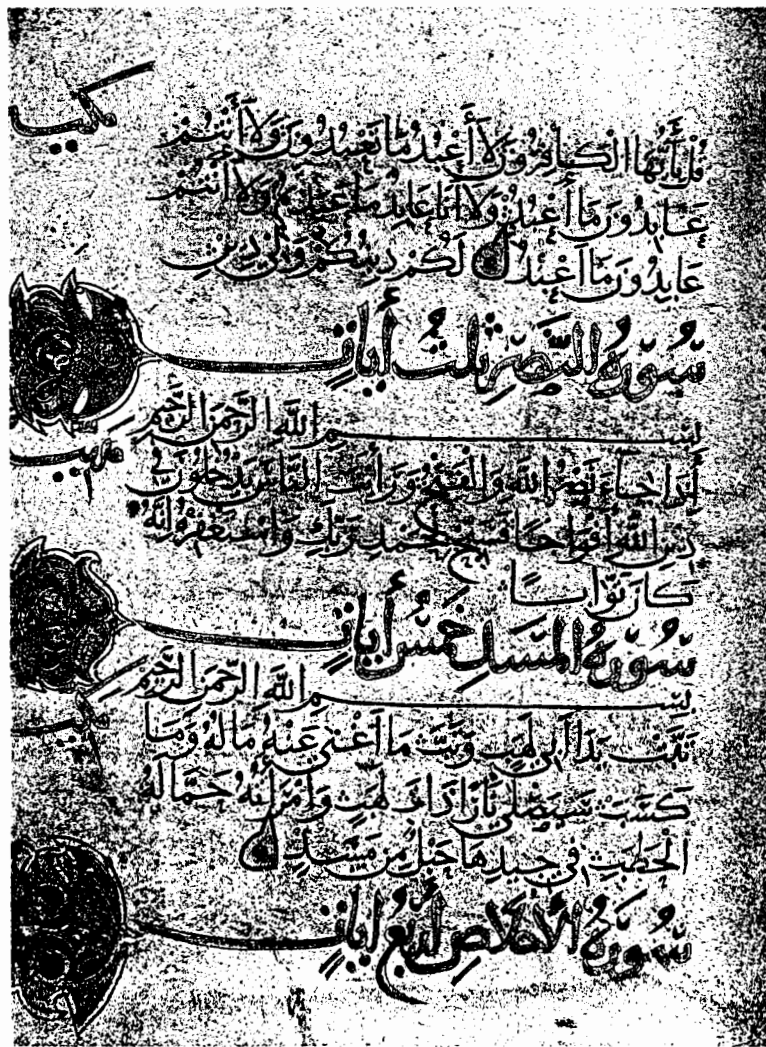 مكية
قُلْ يَا أَيُّهَا الْكَافِرُونَ لَا أَعْبُدُ مَا تَعْبُدُونَ وَلَا أَنْتُمْ
عَابِدُونَ مَا أَعْبُدُ وَلَا أَنَا عَابِدٌ مَا عَبَدْتُمْ وَلَا أَنْتُمْ
عَابِدُونَ مَا أَعْبُدُ لَكُمْ دِينُكُمْ وَلِيَ دِينِ
سُورَةُ النَّصْرِ ثلث أيات
بِسْمِ اللَّهِ الرَّحْمَنِ الرَّحِيمِ
إِذَا جَاءَ نَصْرُ اللَّهِ وَالْفَتْحُ وَرَأَيْتَ النَّاسَ يَدْخُلُونَ فِي
دِينِ اللَّهِ أَفْوَاجًا فَسَبِّحْ بِحَمْدِ رَبِّكَ وَاسْتَغْفِرْهُ إِنَّهُ
كَانَ تَوَّابًا
سُورَةُ الْمَسَدِ خَمْسُ أيات
بِسْمِ اللَّهِ الرَّحْمَنِ الرَّحِيمِ
مكية
تَبَّتْ يَدَا أَبِي لَهَبٍ وَتَبَّ مَا أَغْنَى عَنْهُ مَالُهُ وَمَا
كَسَبَ سَيَصْلَى نَارًا ذَاتَ لَهَبٍ وَامْرَأَتُهُ حَمَّالَةَ
الْحَطَبِ فِي جِيدِهَا حَبْلٌ مِنْ مَسَدٍ
سُورَةُ الْأَخْلَاصِ أَرْبَعُ أيات